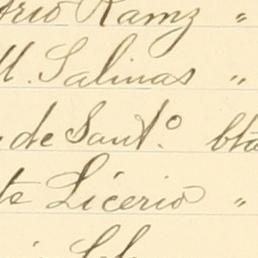 Ramz "
M. Salinas "
de Sant.º bta
Licerio "